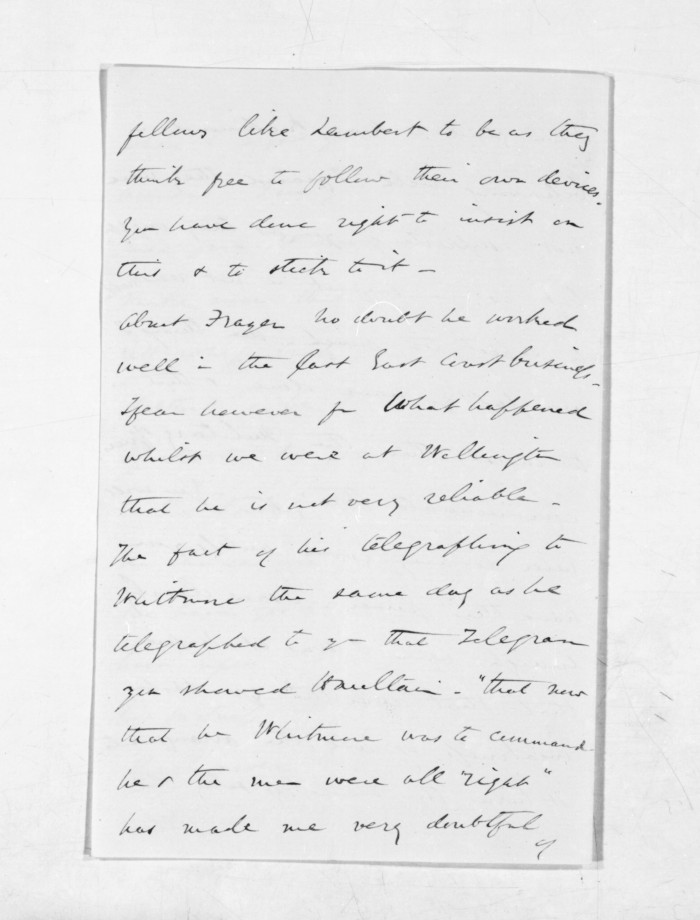 fellows like Lambert to be as they
think free to follow their own devices.
You have done right to insist on
this & to stick to it –
About Frazer no doubt he worked
well in the last East Coast business –
I fear however fr what happened
whilst we were at Wellington
that he is not very reliable –
The fact of his telegraphing to
Whitmore the same day as he
telegraphed to yr that Telegram
you showed Haultain – "that now
that he Whitmore was to command
he & the men were all right"
has made me very doubtful
of